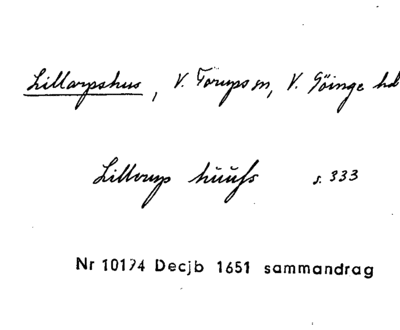 Lillarpshus, V. Torups sn, V. Göinge hd
Lillerup huußs s. 333
Nr 10174 Decjb 1651 sammandrag